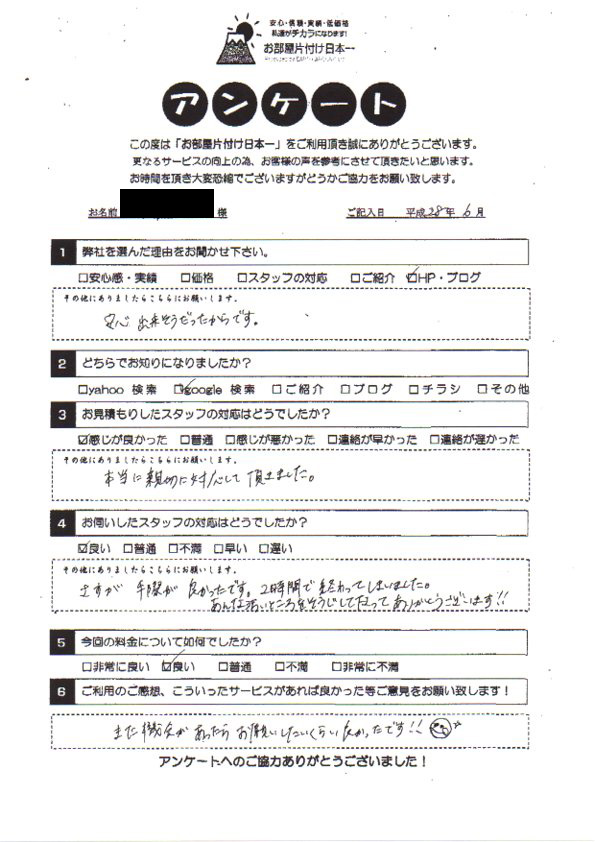 安心・信頼・実績・低価格
私達がチカラになります!
お部屋片付け日本一
アンケート
この度は「お部屋片付け日本一」をご利用頂き誠にありがとうございます。
更なるサービスの向上の為、お客様の声を参考にさせて頂きたいと思います。
お時間を頂き大変恐縮でございますがどうかご協力をお願い致します。
お名前 様 ご記入日 平成28年6月
1 弊社を選んだ理由をお聞かせ下さい。
□安心感・実績 □価格 □スタッフの対応 □ご紹介 ☑HP・ブログ
その他にありましたらこちらにお願いします。
安心出来そうだったからです。
2 どちらでお知りになりましたか?
□yahoo 検索 ☑google 検索 □ご紹介 □ブログ □チラシ □その他
3 お見積もりしたスタッフの対応はどうでしたか?
☑感じが良かった □普通 □感じが悪かった □連絡が早かった □連絡が遅かった
その他にありましたらこちらにお願いします。
本当に親切に対応して頂きました。
4 お伺いしたスタッフの対応はどうでしたか?
☑良い □普通 □不満 □早い □遅い
その他にありましたらこちらにお願いします。
さすが 手際が良かったです。2時間で終わってしまいました。
あんな汚いところをそうじして下さってありがとうございます!!
5 今回の料金について如何でしたか?
□非常に良い ☑良い □普通 □不満 □非常に不満
6 ご利用のご感想、こういったサービスがあれば良かった等ご意見をお願い致します!
また機会があったらお願いしたいくらい良かったです!!
アンケートへのご協力ありがとうございました!